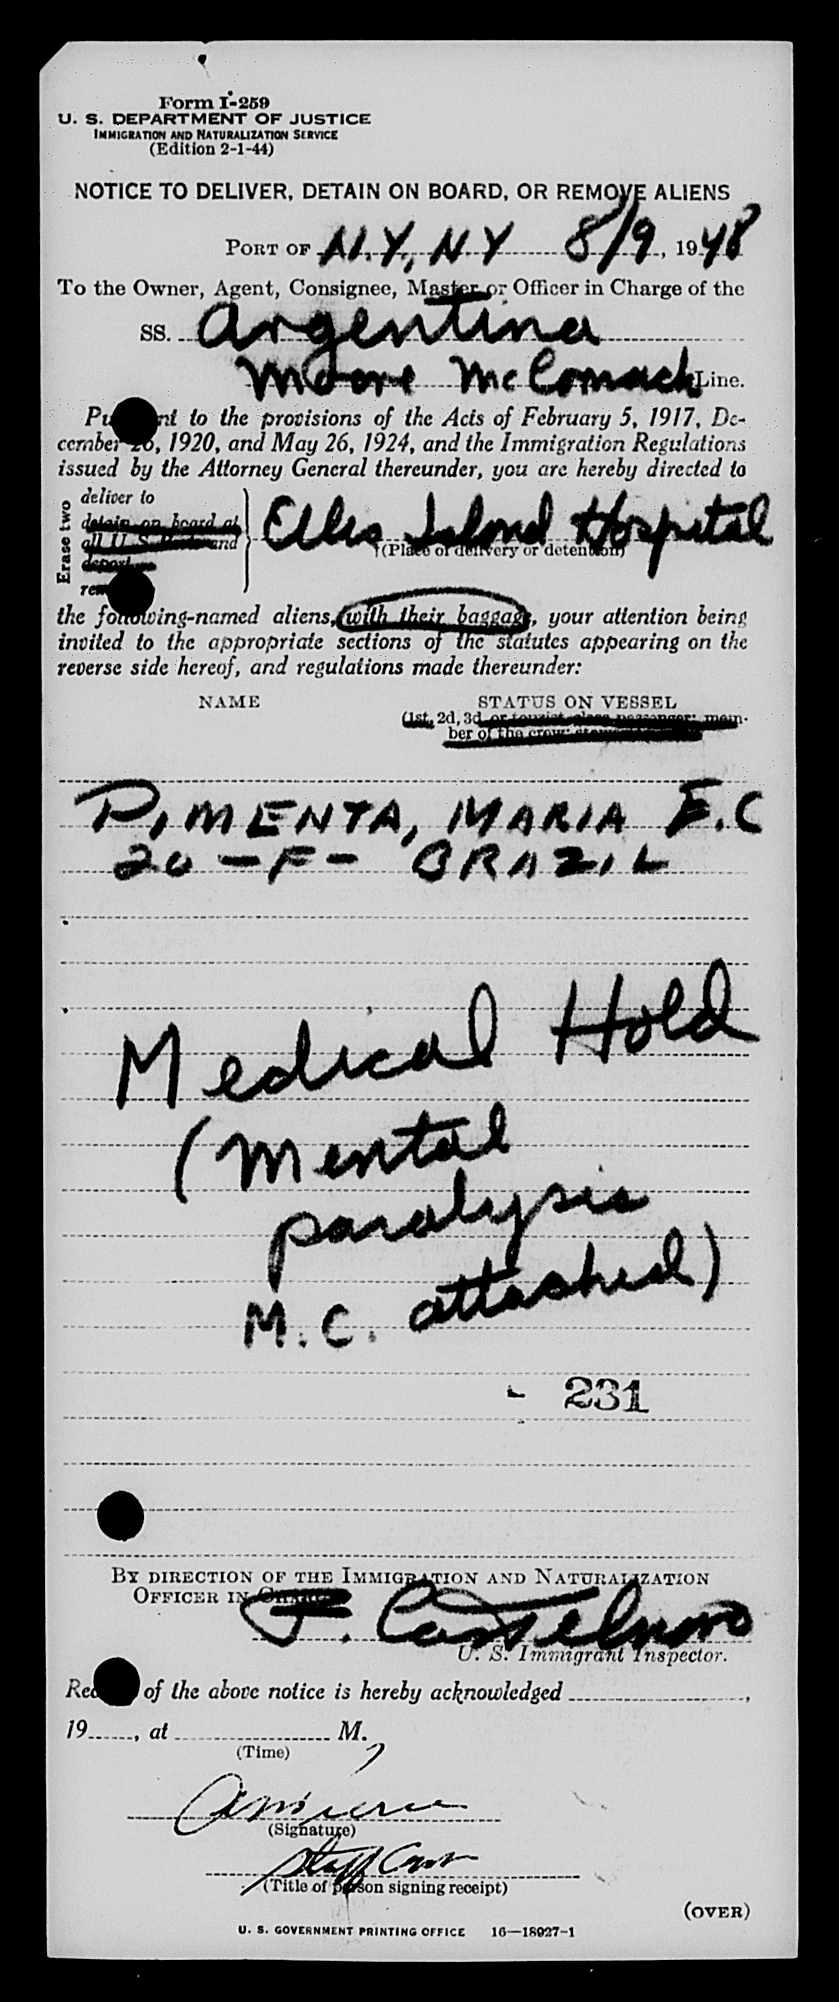 Form I-259
U. S. DEPARTMENT OF JUSTICE
IMMIGRATION AND NATURALIZATION SERVICE
(Edition 2-1-44)
NOTICE TO DELIVER, DETAIN ON BOARD, OR REMOVE ALIENS
PORT OF N.Y., N.Y 8/9, 1948
To the Owner, Agent, Consignee, Master or Officer in Charge of the
SS. Argentina
Moore McComack Line.
Pu nt to the provisions of the Acts of February 5, 1917, De-
cember 26, 1920, and May 26, 1924, and the Immigration Regulations
issued by the Attorney General thereunder, you are hereby directed to
Erase two
deliver to
detain on board at
all U. S. Ports and
deport
re
Ellis Island Hospital
(Place of delivery or detention)
the following-named aliens, with their baggage, your attention being
invited to the appropriate sections of the statutes appearing on the
reverse side hereof, and regulations made thereunder:
NAME STATUS ON VESSEL
(1st, 2d, 3d, or tourist class passenger; mem-
ber of the crew;
PIMENTA, MARIA E.C
20 - F - BRAZIL
Medical Hold
(Mental
paralysis
M.C. attached)
- 231
BY DIRECTION OF THE IMMIGRATION AND NATURALIZATION
OFFICER IN CHARGE
U. S. Immigrant Inspector.
Rec of the above notice is hereby acknowledged ,
19 , at M.
(Time)
(Signature)
Staff
(Title of person signing receipt)
(OVER)
U. S. GOVERNMENT PRINTING OFFICE 16—18927-1